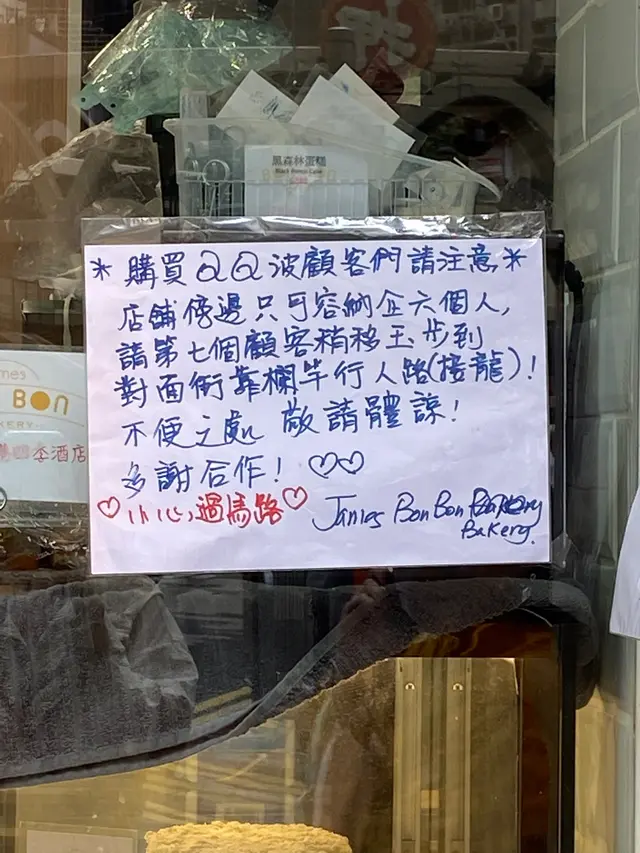 黑森林蛋糕
Black Forest Cake
* 購買QQ波顧客們請注意 *
店舖傍邊只可容納企六個人,
請第七個顧客稍移玉步到
對面街靠欄竿行人路(接龍)!
不便之處 敬請體諒!
多謝合作! ♡♡
♡小心過馬路♡ James Bon Bon Bakery
Bakery.
mes
BON
KERY
季酒店